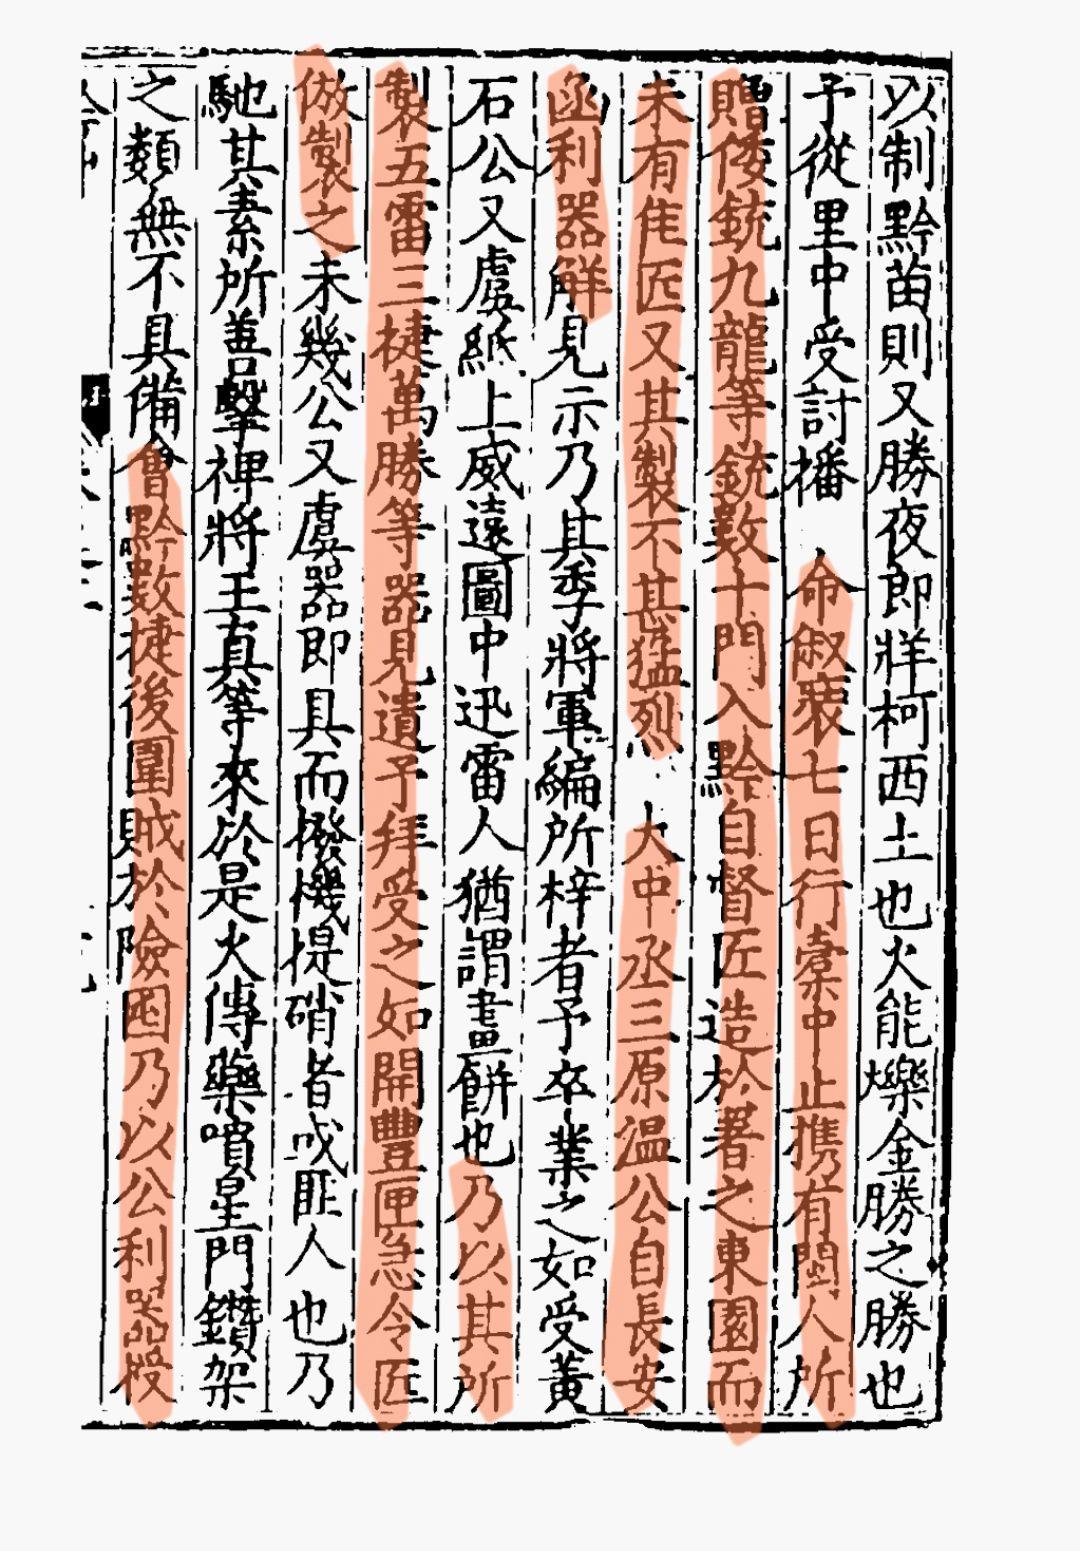 以制黔苗則又勝夜郎牂柯西土也火能爍金勝之勝也
予從里中受討播 命俶裝七日行橐中止攜有閩人所
贈倭銃九龍等銃數十門入黔自督匠造於署之東園而
未有隹匠又其製不甚猛烈 大中丞三原溫公自長安
函利器解見示乃其季將軍編所梓者予卒業之如受黃
石公又虞紙上威遠圖中迅雷人猶謂畫餅也乃以其所
製五雷三捷萬勝等器見遺予拜受之如開豐匣急令匠
倣製之未幾公又虞器即具而撥機提硝者或匪人也乃
馳其素所善擊裨將王真等來於是火傳藥噴星門鑽架
之類無不具備會黔數捷後圍賊於險囤乃以公利器投